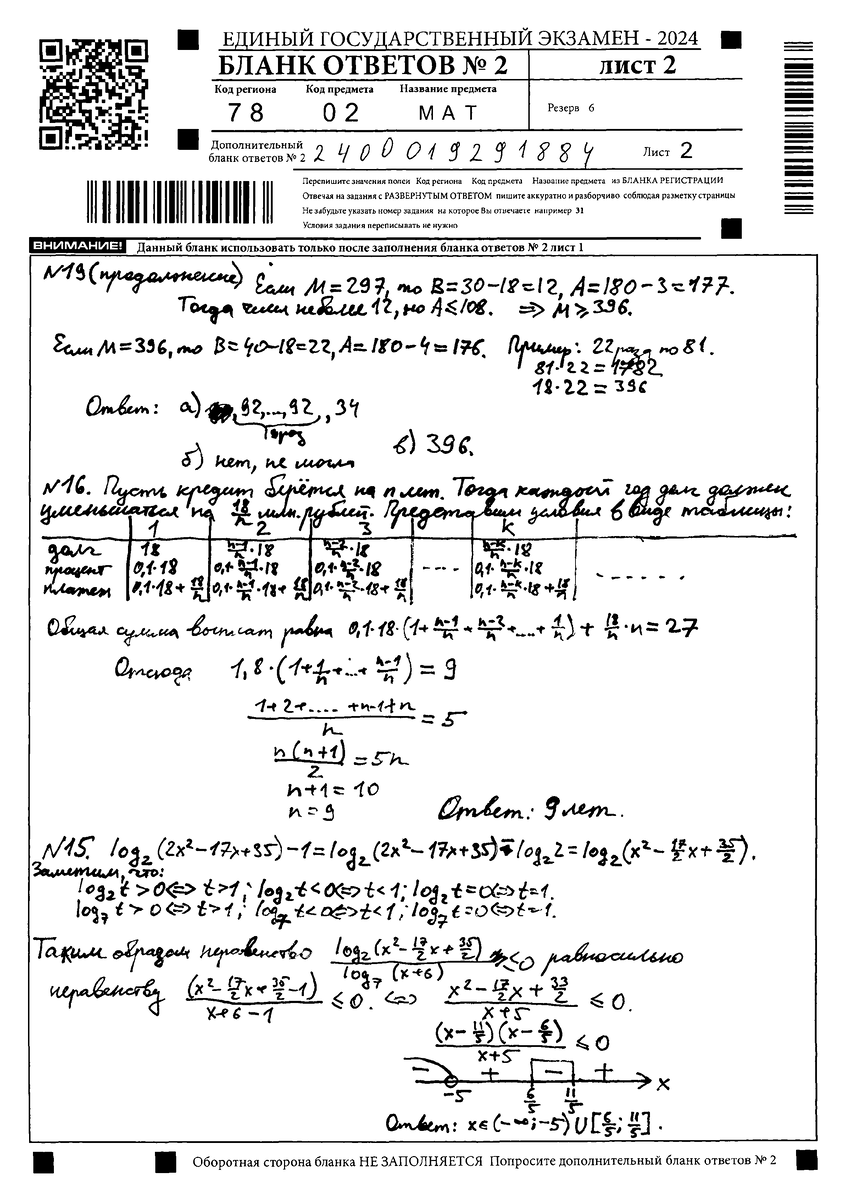 ЕДИНЫЙ ГОСУДАРСТВЕННЫЙ ЭКЗАМЕН - 2024
БЛАНК ОТВЕТОВ № 2 лист 2
Код региона Код предмета Название предмета
78 02 МАТ Резерв 6
Дополнительный бланк ответов № 2 2400019291884 Лист 2
Перепишите значения полей Код региона Код предмета Название предмета из БЛАНКА РЕГИСТРАЦИИ
Отвечая на задания с РАЗВЕРНУТЫМ ОТВЕТОМ пишите аккуратно и разборчиво соблюдая разметку страницы
Не забудьте указать номер задания на которое Вы отвечаете например 31
Условия задания переписывать не нужно
ВНИМАНИЕ! Данный бланк использовать только после заполнения бланка ответов № 2 лист 1
№19 (продолжение) Если M=297, то B=30-18=12, A=180-3=177.
Тогда чисел не более 12, но A≤108. ⇒ M≥396.
Если M=396, то B=40-18=22, A=180-4=176. Пример: 22 раза по 81.
81·22=1782
18·22=396
Ответ: а) 92,...,92, 34
б) нет, не могла
в) 396.
№16. Пусть кредит берётся на n лет. Тогда каждый год долг должен
уменьшаться на 18/n млн.рублей. Представим условия в виде таблицы:
1 2 3 k
долг 18 n-1/n·18 n-2/n·18 n-k/n·18
процент 0,1·18 0,1·n-1/n·18 0,1·n-2/n·18 .... 0,1·n-k/n·18 ......
платеж 0,1·18+18/n 0,1·n-1/n·18+18/n 0,1·n-2/n·18+18/n 0,1·n-k/n·18+18/n
Общая сумма выплат равна 0,1·18·(1+n-1/n+n-2/n+...+1/n)+18/n·n=27
Отсюда 1,8·(1+1/n+...+n-1/n)=9
1+2+....+n-1+n/n=5
n(n+1)/2=5n
n+1=10
n=9 Ответ: 9 лет.
№15. log₂(2x²-17x+35)-1=log₂(2x²-17x+35)-log₂2=log₂(x²-17/2x+35/2).
Заметим, что:
log₂t>0⇔t>1; log₂t<0⇔t<1; log₂t=0⇔t=1.
log₇t>0⇔t>1; log₇t<0⇔t<1; log₇t=0⇔t=1.
Таким образом неравенство log₂(x²-17/2x+35/2)/log₇(x+6) ≤0 равносильно
неравенству (x²-17/2x+35/2-1)/x+6-1 ≤0. ⇔ x²-17/2x+33/2/x+5 ≤0.
(x-11/5)(x-6/5)/x+5 ≤0
- + - +
-5 6/5 11/5 x
Ответ: x∈(-∞;-5)∪[6/5;11/5].
Оборотная сторона бланка НЕ ЗАПОЛНЯЕТСЯ Попросите дополнительный бланк ответов № 2